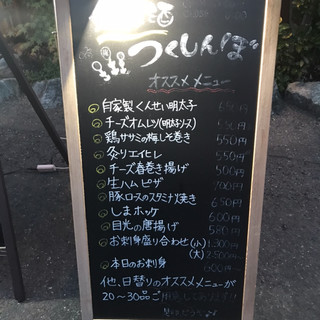 酒
つくしんぼ
オススメメニュー
自家製くんせい明太子
チーズオムレツ(明太ソース)
鶏ササミの梅しそ巻き 550円
炙りエイヒレ 550円
チーズ春巻き揚げ 500円
生ハムピザ 700円
豚ロースのスタミナ焼き 650円
しまホッケ 600円
目光の唐揚げ 580円
お刺身盛り合わせ(小) 1.300円
(大) 2.500円〜
本日のお刺身 600円〜
他、日替りのオススメメニューが
20〜30品ご